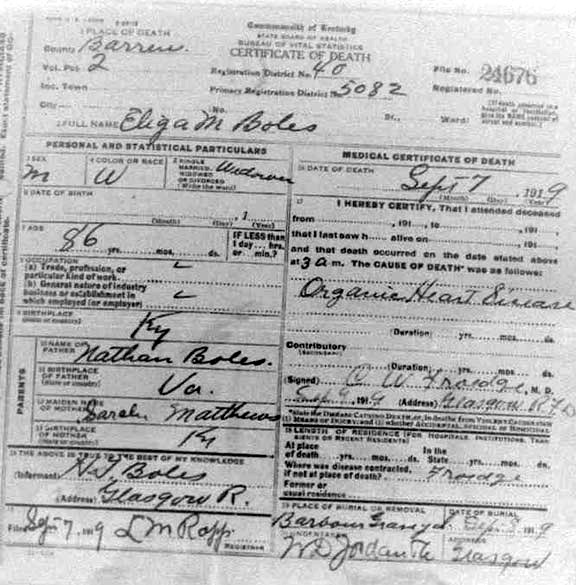 1 PLACE OF DEATH
Commonwealth of Kentucky
STATE BOARD OF HEALTH
BUREAU OF VITAL STATISTICS
CERTIFICATE OF DEATH
County Barren
Vot. Pct 2
Registration District No. 40
File No. 24676
Inc. Town
Primary Registration District No. 5082
Registered No.
City
No.
St.,
Ward)
(If death occurred in a hospital or institution, give its NAME instead of street and number.)
2 FULL NAME Eliga M Boles
PERSONAL AND STATISTICAL PARTICULARS
3 SEX
M
4 COLOR OR RACE
W
5 SINGLE
MARRIED,
WIDOWED
OR DIVORCED
(Write the word)
Widower
6 DATE OF BIRTH
, 1
(Month) (Day) (Year)
7 AGE
86
yrs. mos. ds.
IF LESS than
1 day... hrs.
or min.?
8 OCCUPATION
(a) Trade, profession, or
particular kind of work
(b) General nature of industry
business or establishment in
which employed (or employer)
9 BIRTHPLACE
(State or country)
Ky
PARENTS
10 NAME OF
FATHER
Nathan Boles.
11 BIRTHPLACE
OF FATHER
(State or country)
Va.
12 MAIDEN NAME
OF MOTHER
Sarah Matthews
13 BIRTHPLACE
OF MOTHER
(State or country)
Ky
14 THE ABOVE IS TRUE TO THE BEST OF MY KNOWLEDGE
(Informant) Boles
(Address) Glasgow R.
15
Filed Sep 7, 1919 L M Ropp
REGISTRAR
MEDICAL CERTIFICATE OF DEATH
16 DATE OF DEATH
Sept 7 1919
(Month) (Day) (Year)
17
I HEREBY CERTIFY, That I attended deceased
from , 191 , to , 191 ,
that I last saw h alive on , 191 ,
and that death occurred on the date stated above
at 3 a m. The CAUSE OF DEATH* was as follows:
Organic Heart Disease
(Duration) yrs. mos. ds.
Contributory
(SECONDARY)
(Duration) yrs. mos. ds.
(Signed) C W Froedge, M. D.
Sep 9, 1919 (Address) Glasgow R F D
*State the DISEASE CAUSING DEATH, or, in deaths from VIOLENT CAUSES state
(1) MEANS OF INJURY; and (2) whether ACCIDENTAL, SUICIDAL or HOMICIDAL
18 LENGTH OF RESIDENCE (FOR HOSPITALS, INSTITUTIONS, TRANSIENTS OR RECENT RESIDENTS)
At place
of death yrs. mos. ds.
In the
State yrs. mos. ds.
Where was disease contracted,
if not at place of death? Froedge
Former or
usual residence
19 PLACE OF BURIAL OR REMOVAL
Barbour
DATE OF BURIAL
Sep. 8, 1919
20 UNDERTAKER
W D Jordan
ADDRESS
Glasgow